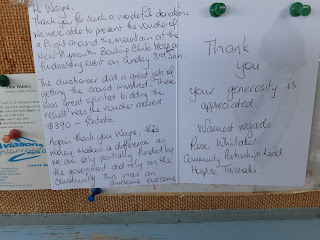 Hi Wayne,
Thank you for such a wonderful donation.
We were able to present the voucher of
a flight around the mountain at the
New Plymouth Bowling Club's Hospice
fundraising event on Sunday 3rd
The auctioneer did a great job of
getting the crowd involved. There
was great spirited bidding the
result was the voucher raised
$390 - fantastic
Again thank you Wayne, this
money makes a difference as
we are only partially funded by
the government and rely on the
community. This was an
awesome outcome
Thank
you
your generosity is
appreciated.
Warmest regards
Rose Whitaker
Community Partnerships Lead
Hospice Taranaki.
Aviation